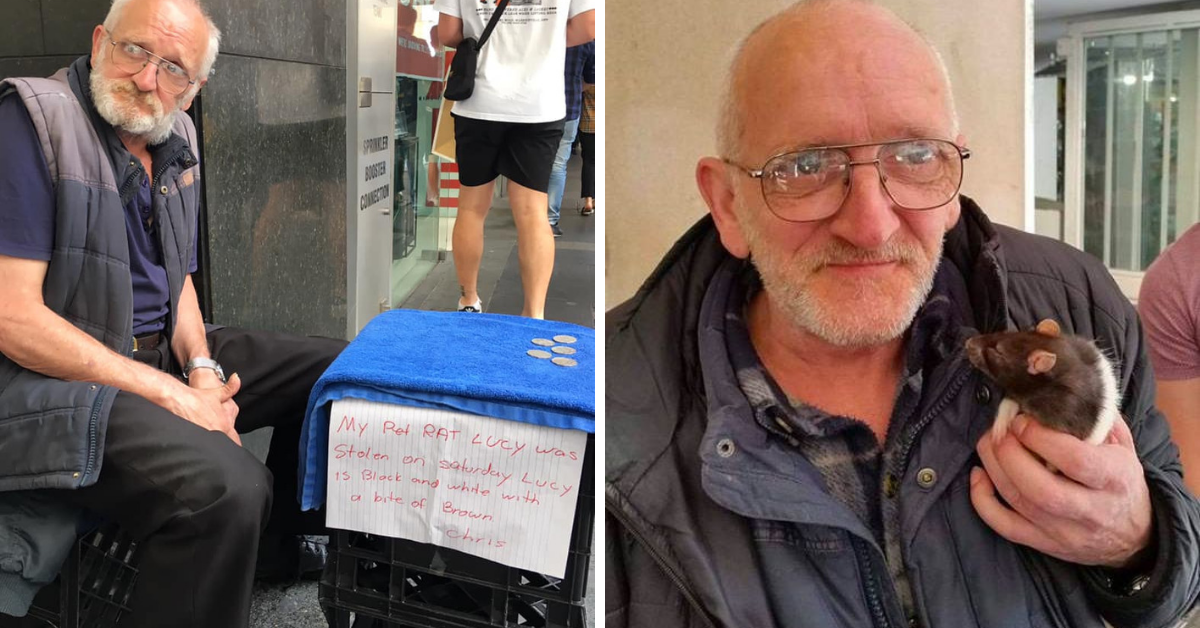 SPRINKLER
BOOSTER
CONNECTION
My Pet RAT LUCY was
Stolen on saturday LUCY
is Black and white with
a bite of Brown
Chris